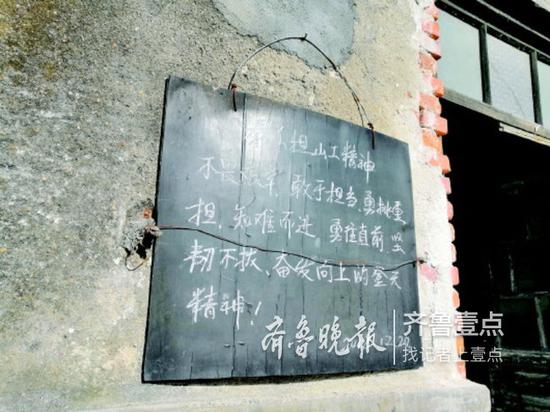 担山工精神
不畏艰辛,敢于担当,勇挑重
担,知难而进 勇往直前 坚
韧不拔、奋发向上的金天
精神!
12.20
齐鲁晚报
齐鲁壹点
找记者上壹点